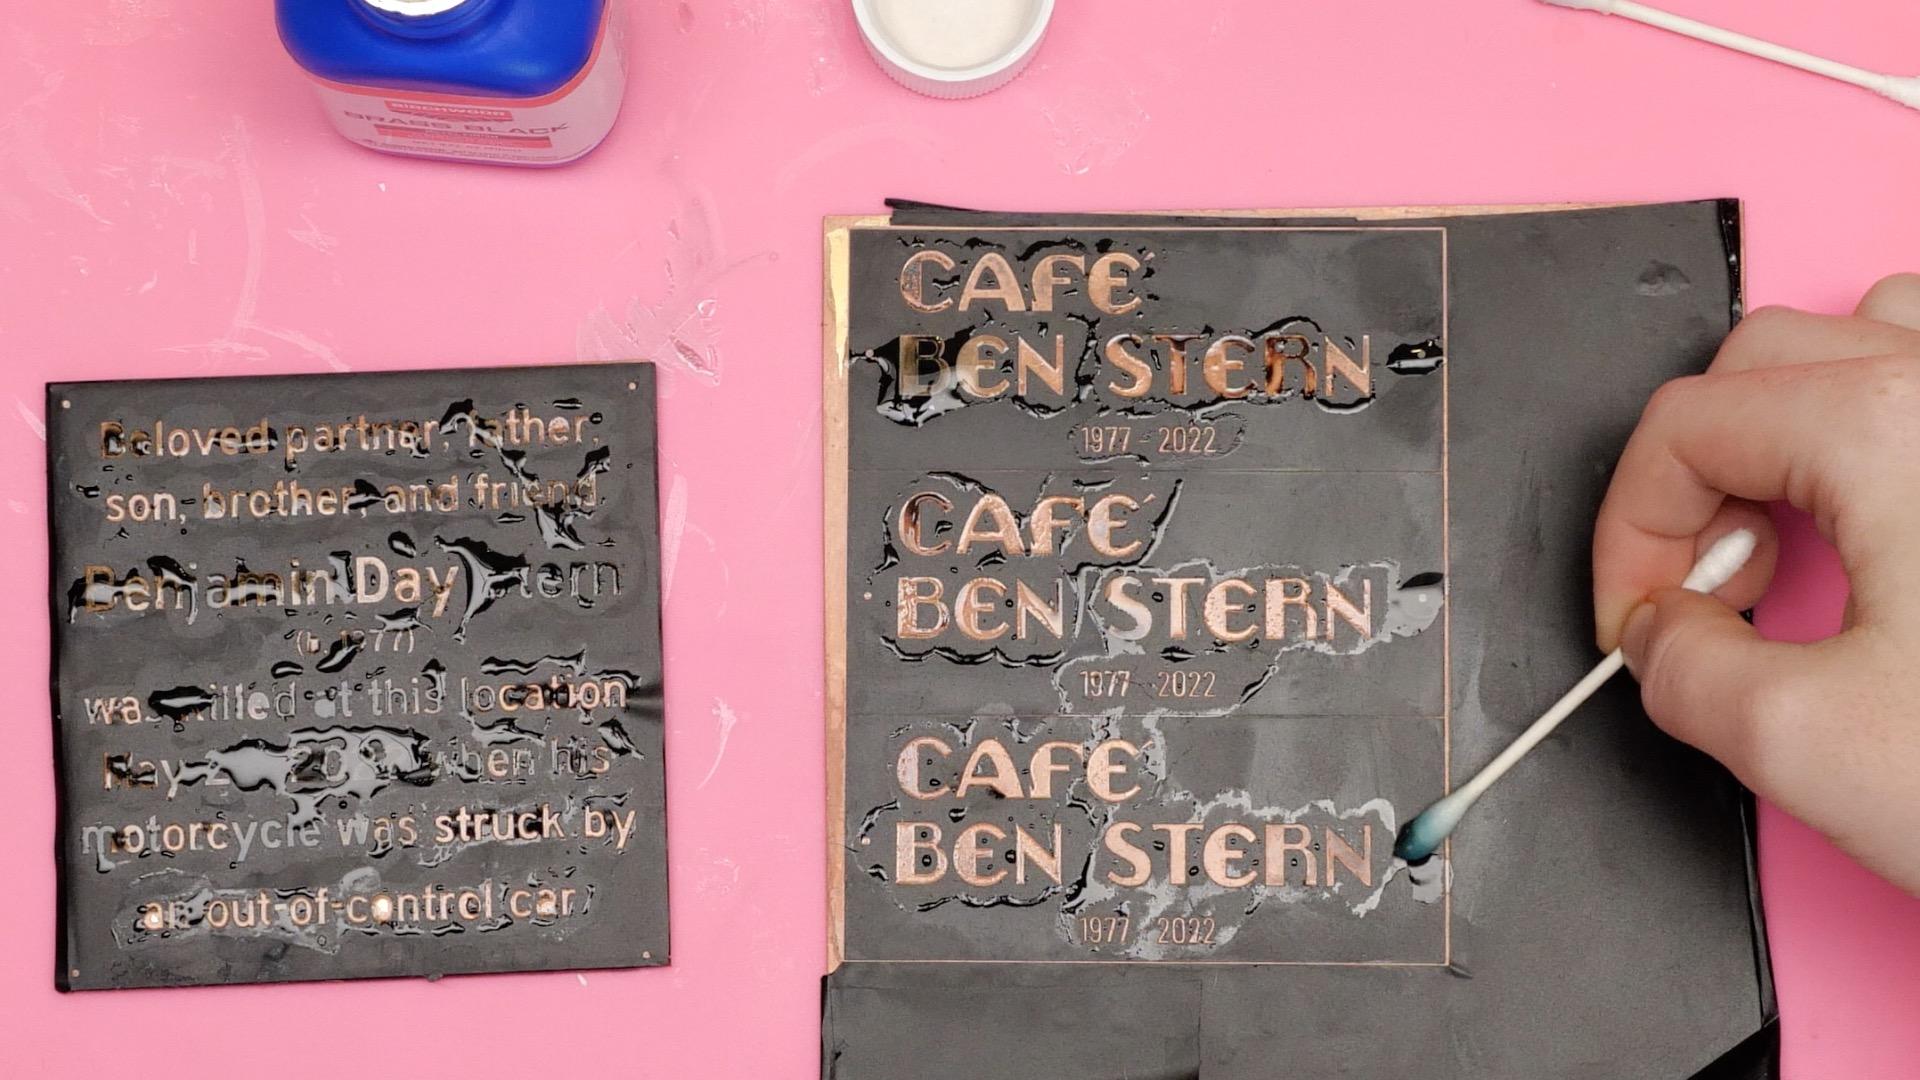 BIRCHWOOD
BRASS BLACK
Beloved partner, father,
son, brother, and friend
Benjamin Day Stern
(b. 1977)
was killed at this location
May 2022 when his
motorcycle was struck by
an out-of-control car
CAFÉ
BEN STERN
1977 - 2022
CAFÉ
BEN STERN
1977 - 2022
CAFÉ
BEN STERN
1977 - 2022